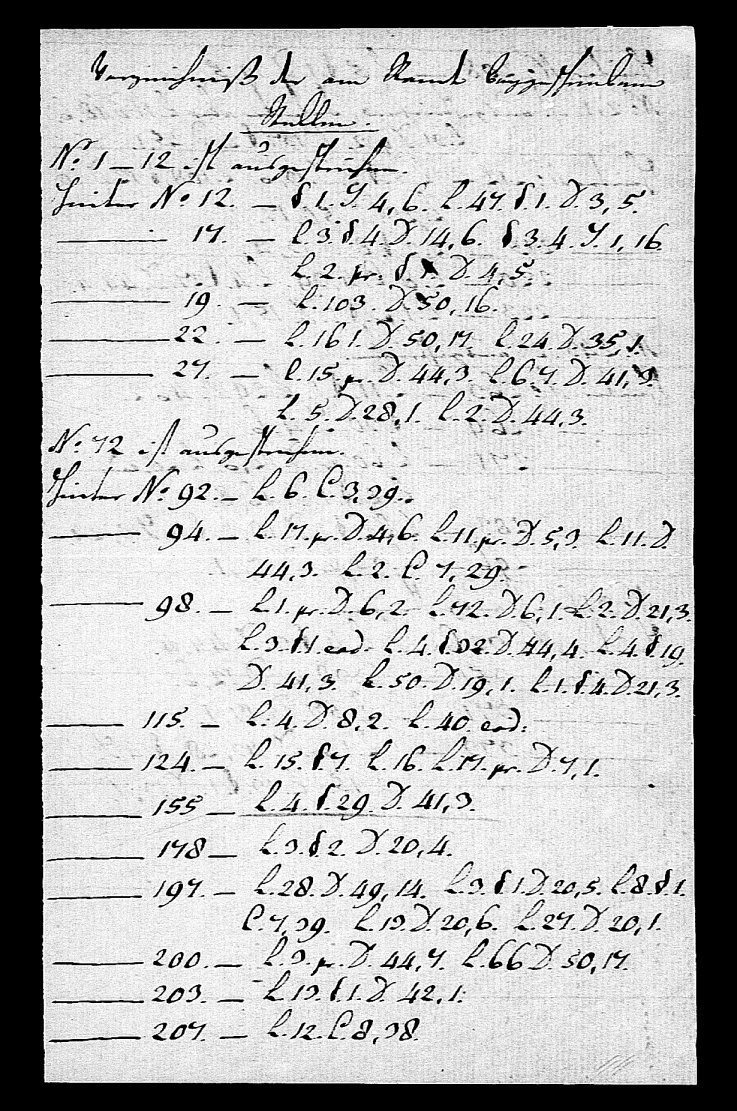 Verzeichniß der am Rande beygeschriebenen
Stellen.
No. 1–12 ist ausgestrichen.
Hinter No 12. — §.1. J. 4, 6. l. 47. §.1. D. 3, 5.
——— 17. — l. 3. §. 4. D. 14, 6. §. 3. 4. J. 1, 16
l. 2. pr. §. 1. D. 4, 5.
——— 19. — l. 103. D. 50, 16.
——— 22. — l. 161. D. 50, 17. l. 24. D. 35, 1.
——— 27. — l. 15. pr. D. 44, 3. l. 6. 7. D. 41, 3.
l. 5. D. 28, 1. l. 2. D. 44, 3.
No. 72 ist ausgestrichen.
Hinter No. 92. — l. 6. C. 3, 39.
——— 94. — l. 17. pr. D. 4, 6. l. 11. pr. D. 5, 3. l. 11. D.
44, 3. l. 2. C. 7, 29.
——— 98. — l. 1. pr. D. 6, 2. l. 72. D. 6, 1. l. 2. D. 21, 3.
l. 3. §. 1. eod. l. 4. §. 32. D. 44, 4. l. 4. §. 19.
D. 41, 3. l. 50. D. 19, 1. l. 1. §. 4. D. 21, 3.
——— 115. — l. 4. D. 8, 2. l. 40. eod:
——— 124. — l. 15. §. 7. l. 16. l. 17. pr. D. 7, 1.
——— 155 — l. 4. §. 29. D. 41, 3.
——— 178 — l. 3. §. 2. D. 20, 4.
——— 197. — l. 28. D. 49, 14. l. 3. §. 1. D. 20, 5. l. 8. §. 1.
C. 7, 39. l. 13. D. 20, 6. l. 27. D. 20, 1.
——— 200. — l. 3. pr. D. 44, 7. l. 66 D. 50, 17.
——— 203. — l. 13. §. 1. D. 42, 1.
——— 207. — l. 12. C. 8, 38.